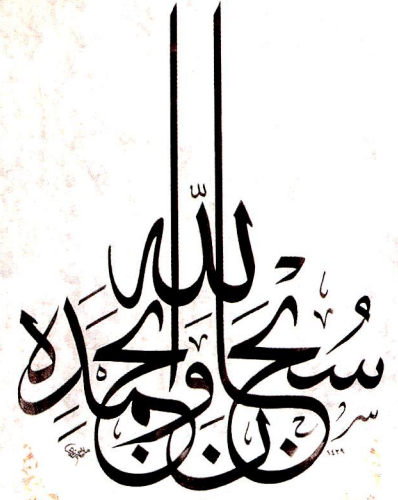 سُبْحَانَ اللّٰهِ وَبِحَمْدِهِ
١٤٢٩